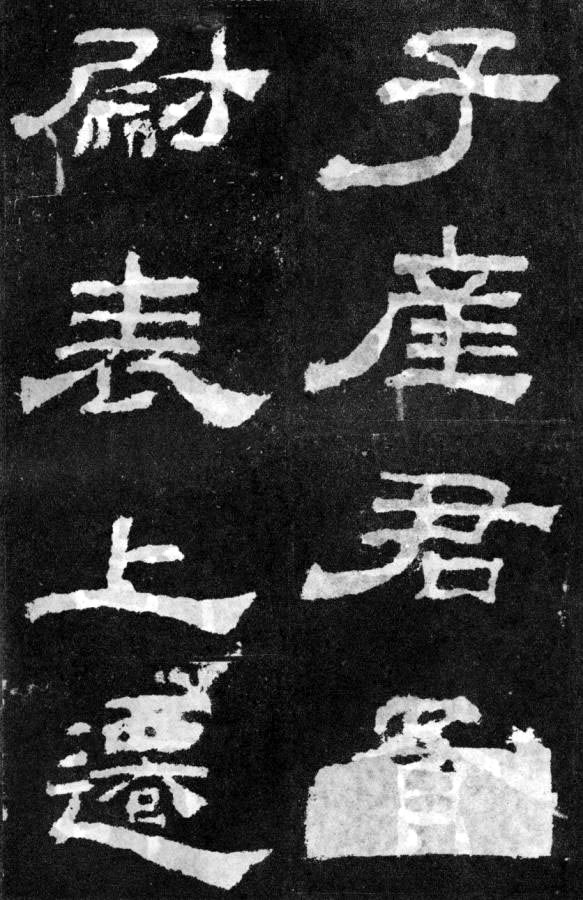 子産君
尉表上遷